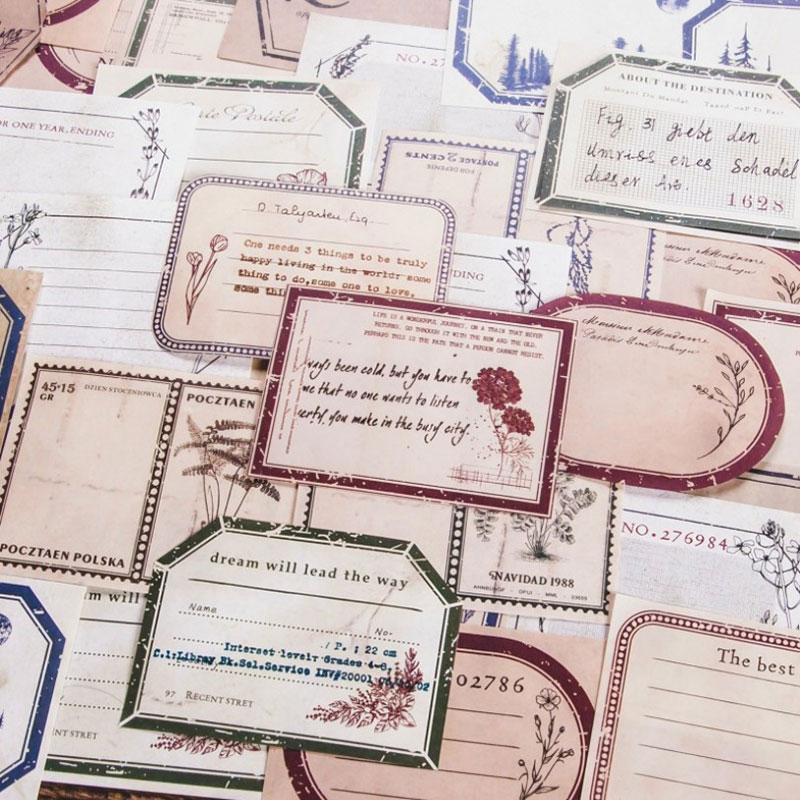 NO.27
ABOUT THE DESTINATION
Fig. 31 giebt den
Umriss eines Schädel
dieser Art.
1628
Carte Postale
OR ONE YEAR, ENDING
POSTAGE 2 CENTS
FOR DEFENSE
One needs 3 things to be truly
happy living in the world: some
thing to do, some one to love,
some thi
DING
LIFE IS A WONDERFUL JOURNEY, OR A TRAIN THAT NEVER
RETURNS. GO THROUGH IT WITH THE NEW AND THE OLD.
PERHAPS THIS IS THE FATE THAT A PERSON CANNOT RESIST.
ways been cold, but you have to
me that no one wants to listen
erty, you make in the busy city.
Monsieur
45+15
GR
DZIEN STOCENIOWCA
POCZTAEN
POCZTAEN POLSKA
NAVIDAD 1988
NO.276984
dream will lead the way
Name
No-
/ P. ; 22 cm
Interset lovel: Grades 4-6,
C.1:Libray Bk.Sel.Service INV#20001
97 RECENT STRET
am will
NT STRET
02786
The best